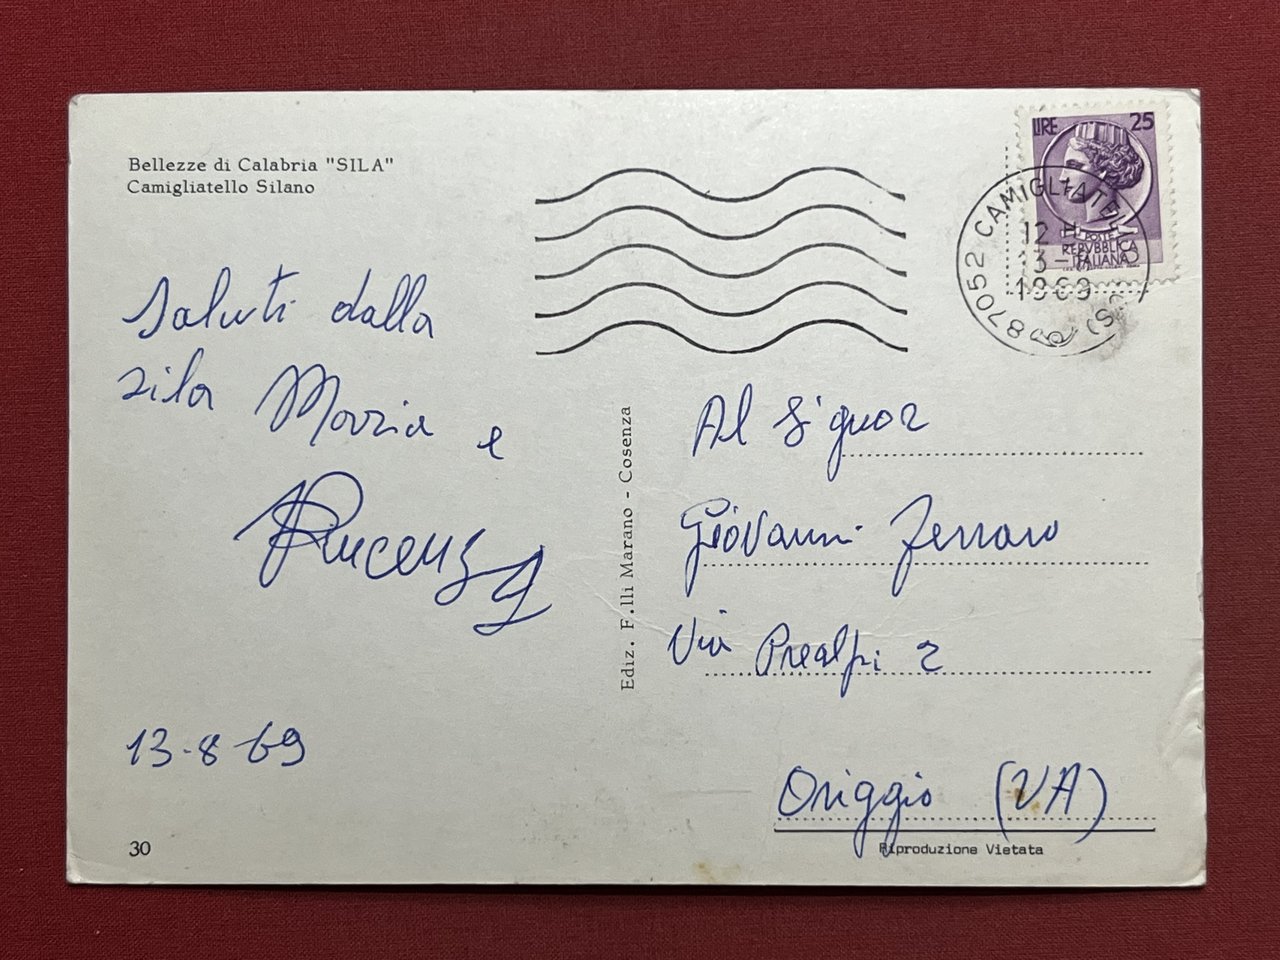 Bellezze di Calabria "SILA"
Camigliatello Silano
LIRE 25
POSTE
REPVBBLICA
ITALIANA
87052 CAMIGLIATELLO
12 H
13-
1969
(CS)
Saluti dalla
Sila Maria e
Vincenzo
13-8-69
30
Ediz. F.lli Marano - Cosenza
Al Signor
Giovanni Ferraro
Via Prealpi 2
Origgio (VA)
Riproduzione Vietata